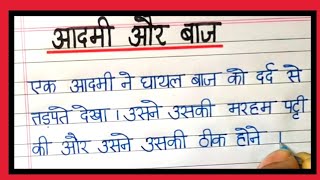 आदमी और बाज
एक आदमी ने घायल बाज को दर्द से
तड़पते देखा । उसने उसकी मरहम पट्टी
की और उसने उसकी ठीक होने ।